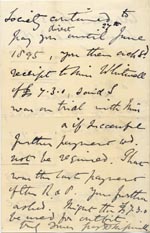 Society continued to
pay you until June
1895, you then ackd
receipt to Miss
of £7.3.0, said I
was on trial with Miss
& if successful
further payment wd
not be required. That
was the last payment
of the R & P. You further
asked. Might the £7.3.0
be used for